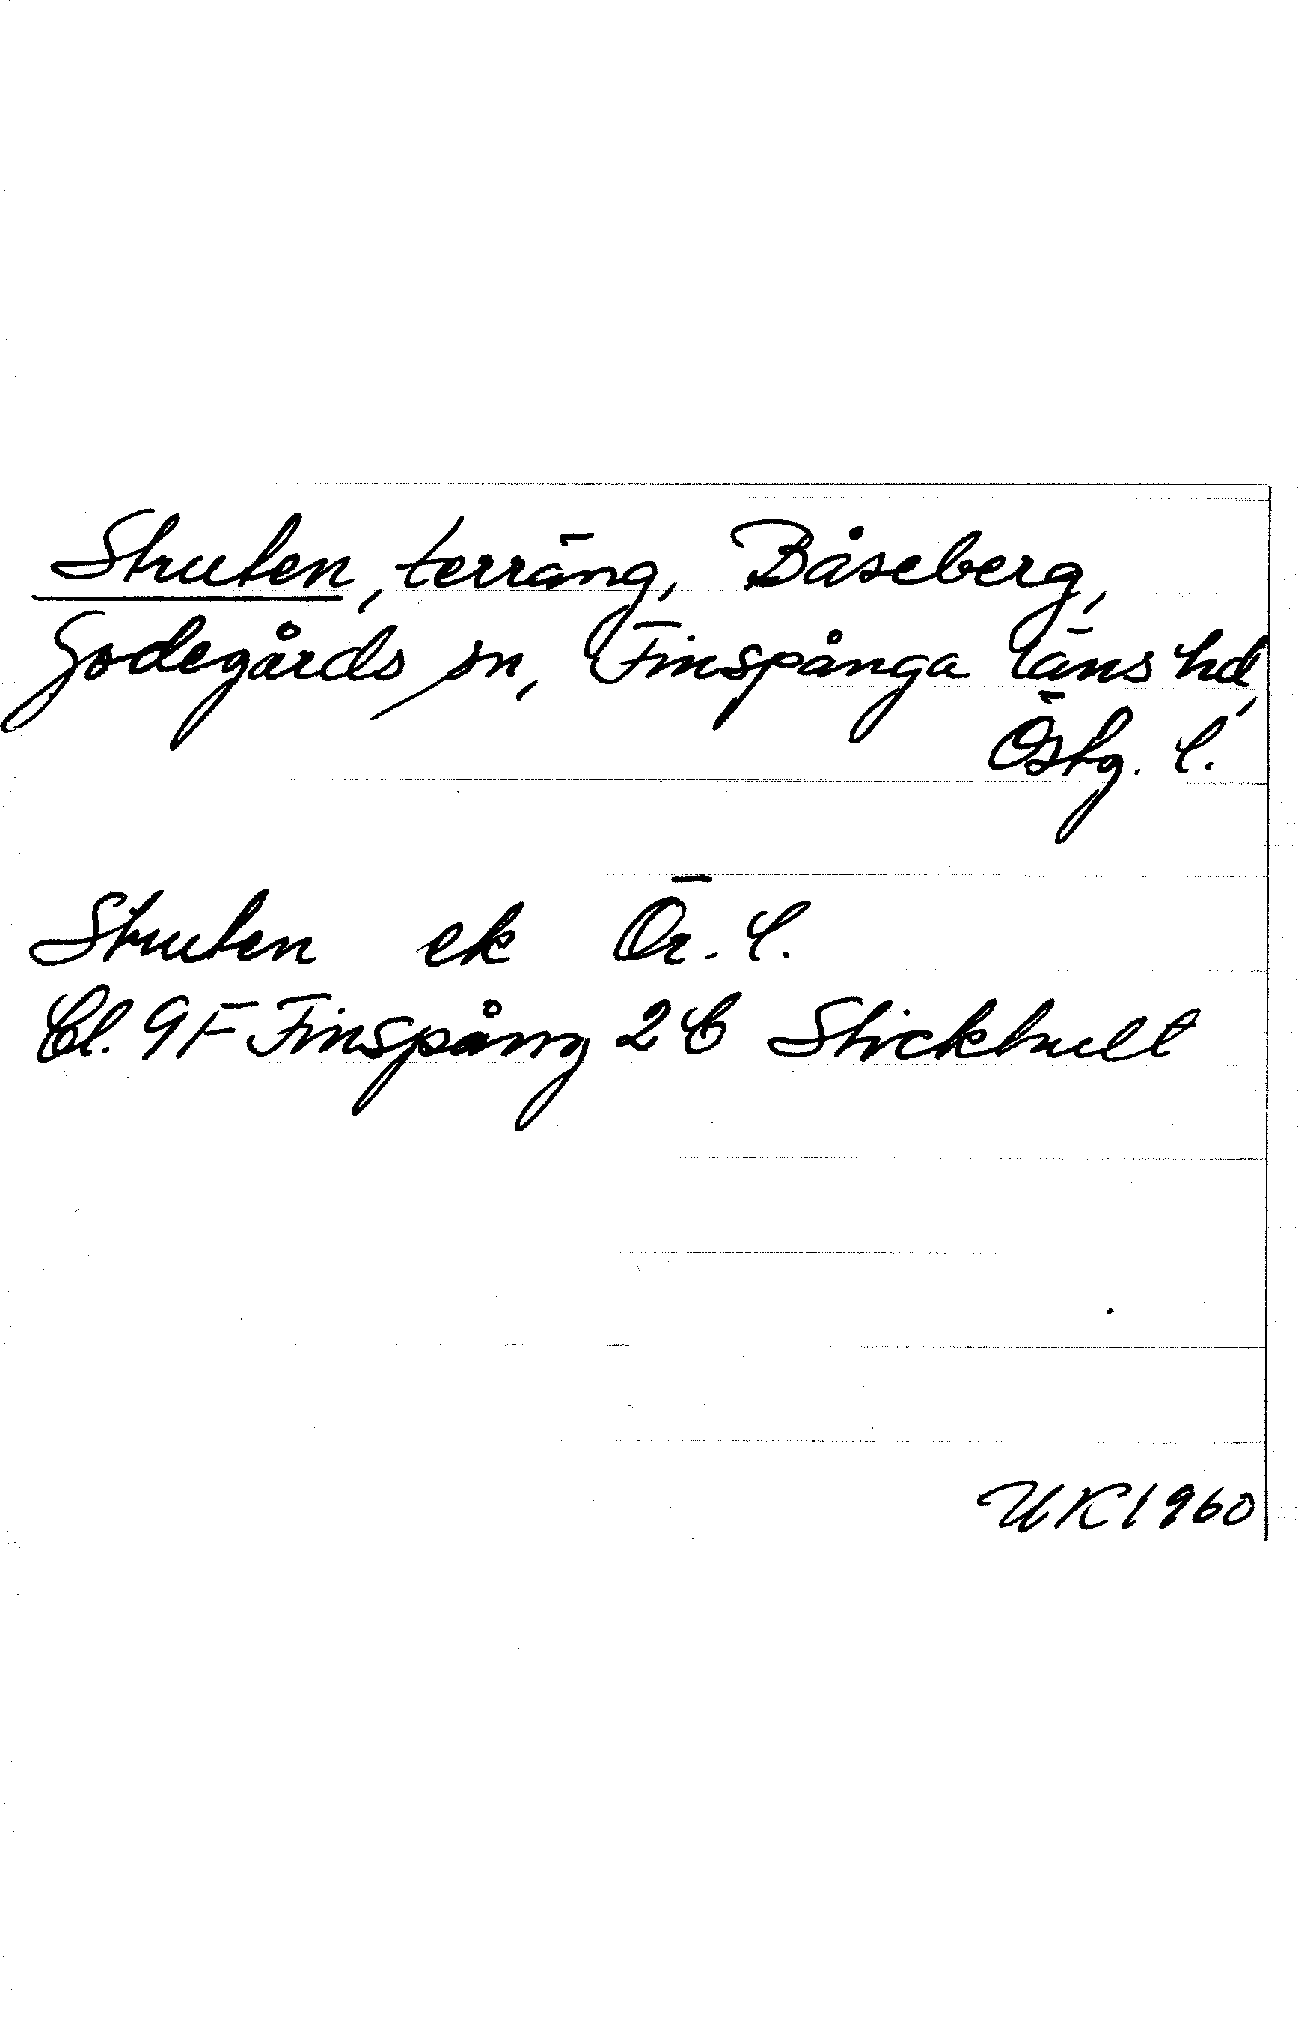 Struten, terräng, Båseberg,
Godegårds sn, Finspånga läns hd,
Östg. l.
Struten ek Ör. l.
Bl. 9F Finspång 2 C Stickhult
UK 1960